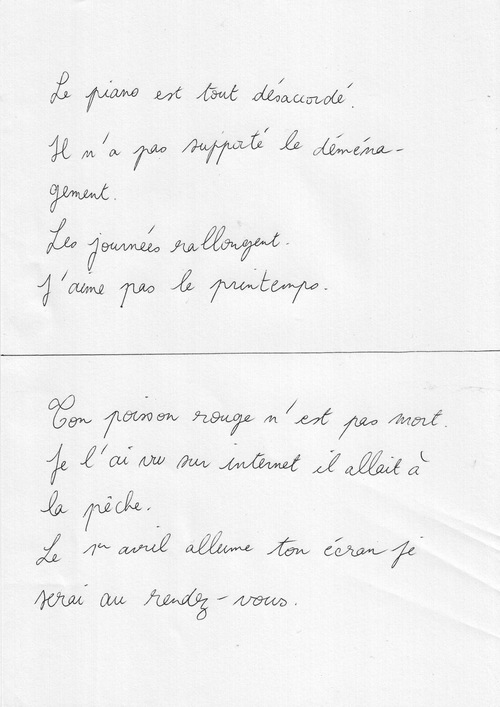 Le piano est tout désaccordé.
Il n'a pas supporté le déména-
gement.
Les journées rallongent.
J'aime pas le printemps.
Ton poisson rouge n'est pas mort.
Je l'ai vu sur internet il allait à
la pêche.
Le 1er avril allume ton écran je
serai au rendez-vous.